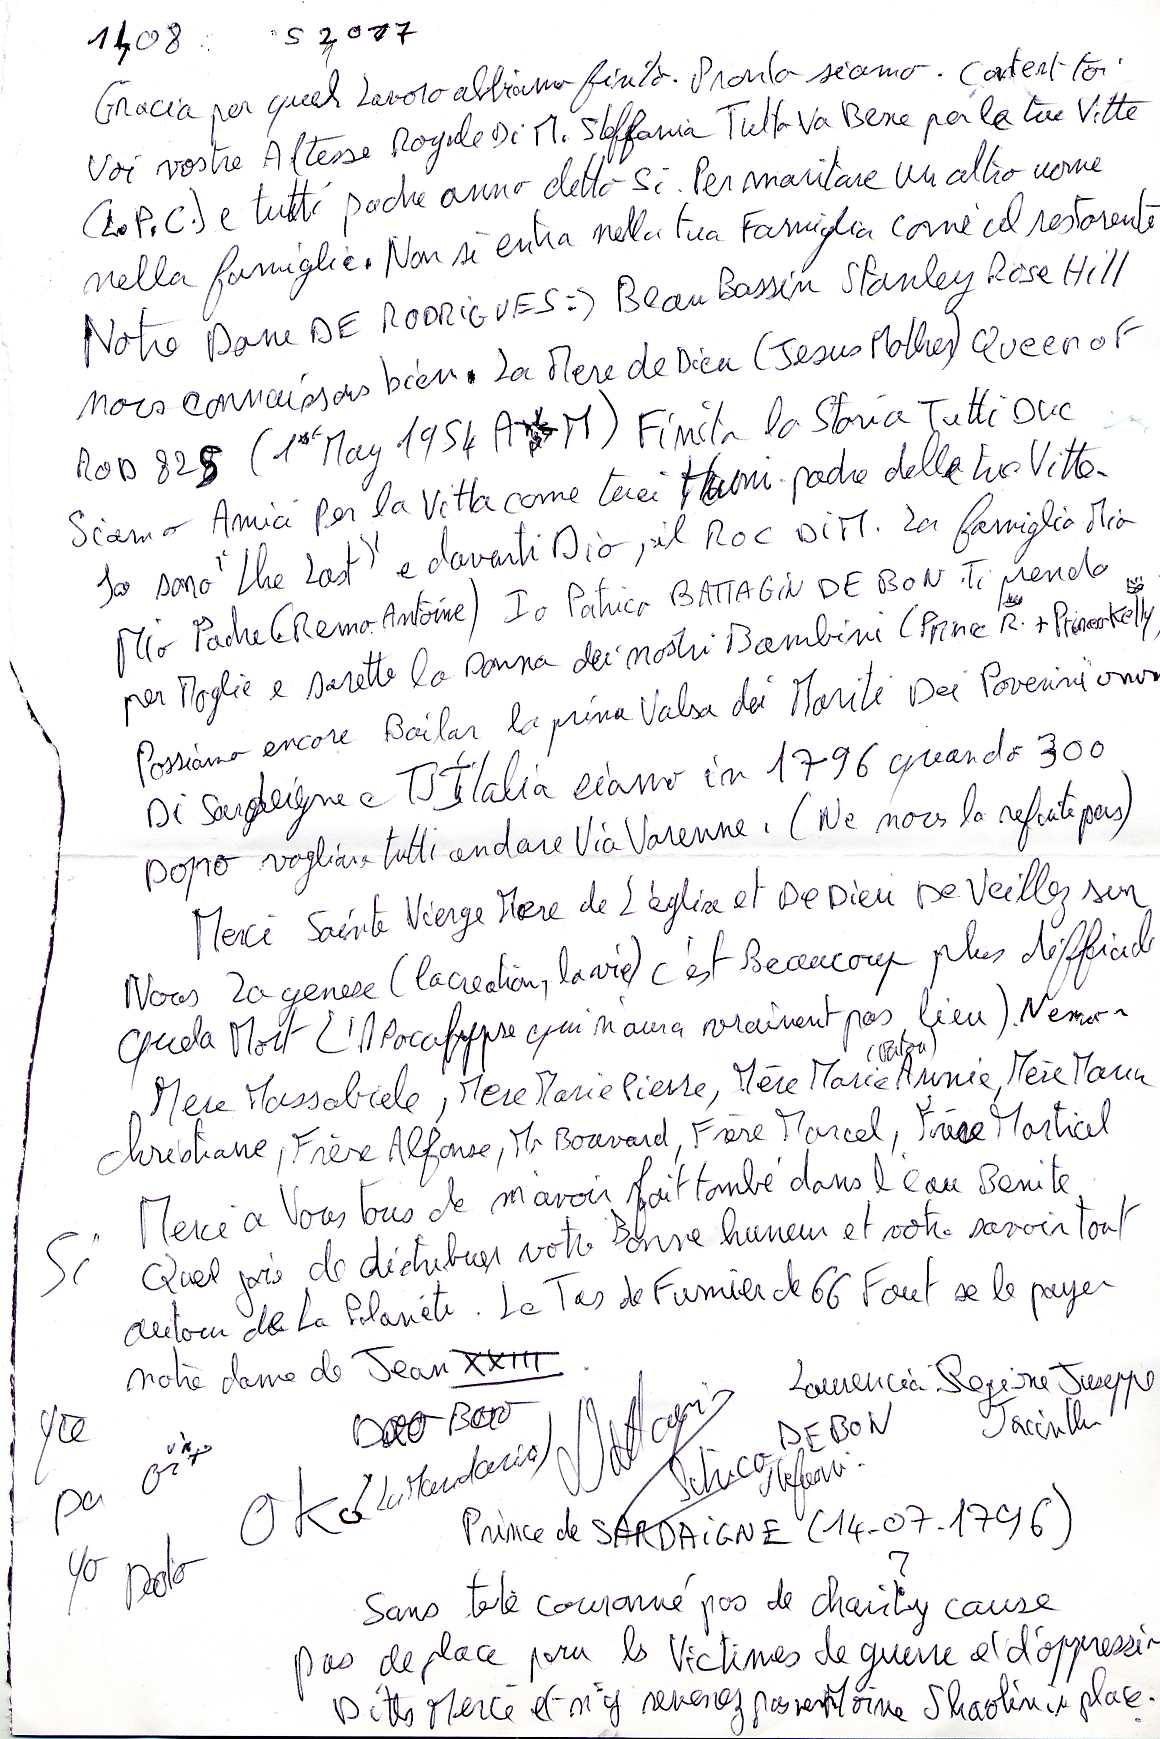 14 08 2017
Gracia per quel Lavoro abbiamo finito. Pronto siamo.
Voi vostre Altesse Royale Di M. Steffania Tutto Va Bene per la tue Vitte
(L.P.C.) e tutti padre anno detto Si. Per maritare un altro nome
nella famiglie. Non si entra nella tua Famiglia come il restorente
Notre Dame DE RODRIGUES => Beau Bassin Stanley Rose Hill
nous connaissons bien. La Mere de Dieu (Jesus Mother) Queen of
ROD 828 (1st May 1954 M) Finita la Storia Tutti Duc
Siamo Amici Per la Vitta come padre della tue Vitta.
Io sono "the Last" e davanti Dio, il Roc Di M. La famiglia Mia
Mio Padre (Remo Antoine) Io Patrico BATTAGIN DE BON Ti prendo
per Moglie e sarette la Donna dei nostri Bambini (Prince R. + Princess Kelly,
Possiamo encore Bailar la prima Valsa dei Mariti Dei Poverini
Di Sardeigne e D'Italia siamo in 1796 quando 300
Dopo vogliamo tutti andare Via Varenne. (Ne nous la refaite pas)
Merci Sainte Vierge Mere de L'église et De Dieu De Veillez sur
Nous La genese (la creation, la vie) c'est Beaucoup plus difficile
que la Mort L'Apocalypse qui n'aura vraiment pas lieu).
(Patou)
Mere Massabiele, Mere Marie Pierre, Mère Marie Annie, Mère Marie
Christiane, Frère Alfonse, Mr Bouvard, Frère Marcel, Frère Martial
Merci a Vous tous de m'avoir fait tombé dans l'eau Benite
Si Quel joie de distribuer votre Bonne humeur et votre savoir tout
autour de La Planète. Le Tas de Fumier de 66 Faut se le payer
notre dame de Jean XXIII
Laurencia Regine Juseppe
Jacintha
DE BON
OK
Prince de SARDAIGNE (14-07-1796)
?
Sans tete couronné pas de charity cause
pas de place pour les Victimes de guerre et d'oppression
Dites Merci et n'y revenez pas Moine Shaolin in place.